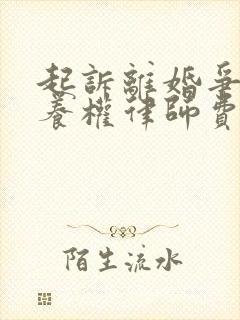 起訴離婚爭
養權律師費
陌生流水